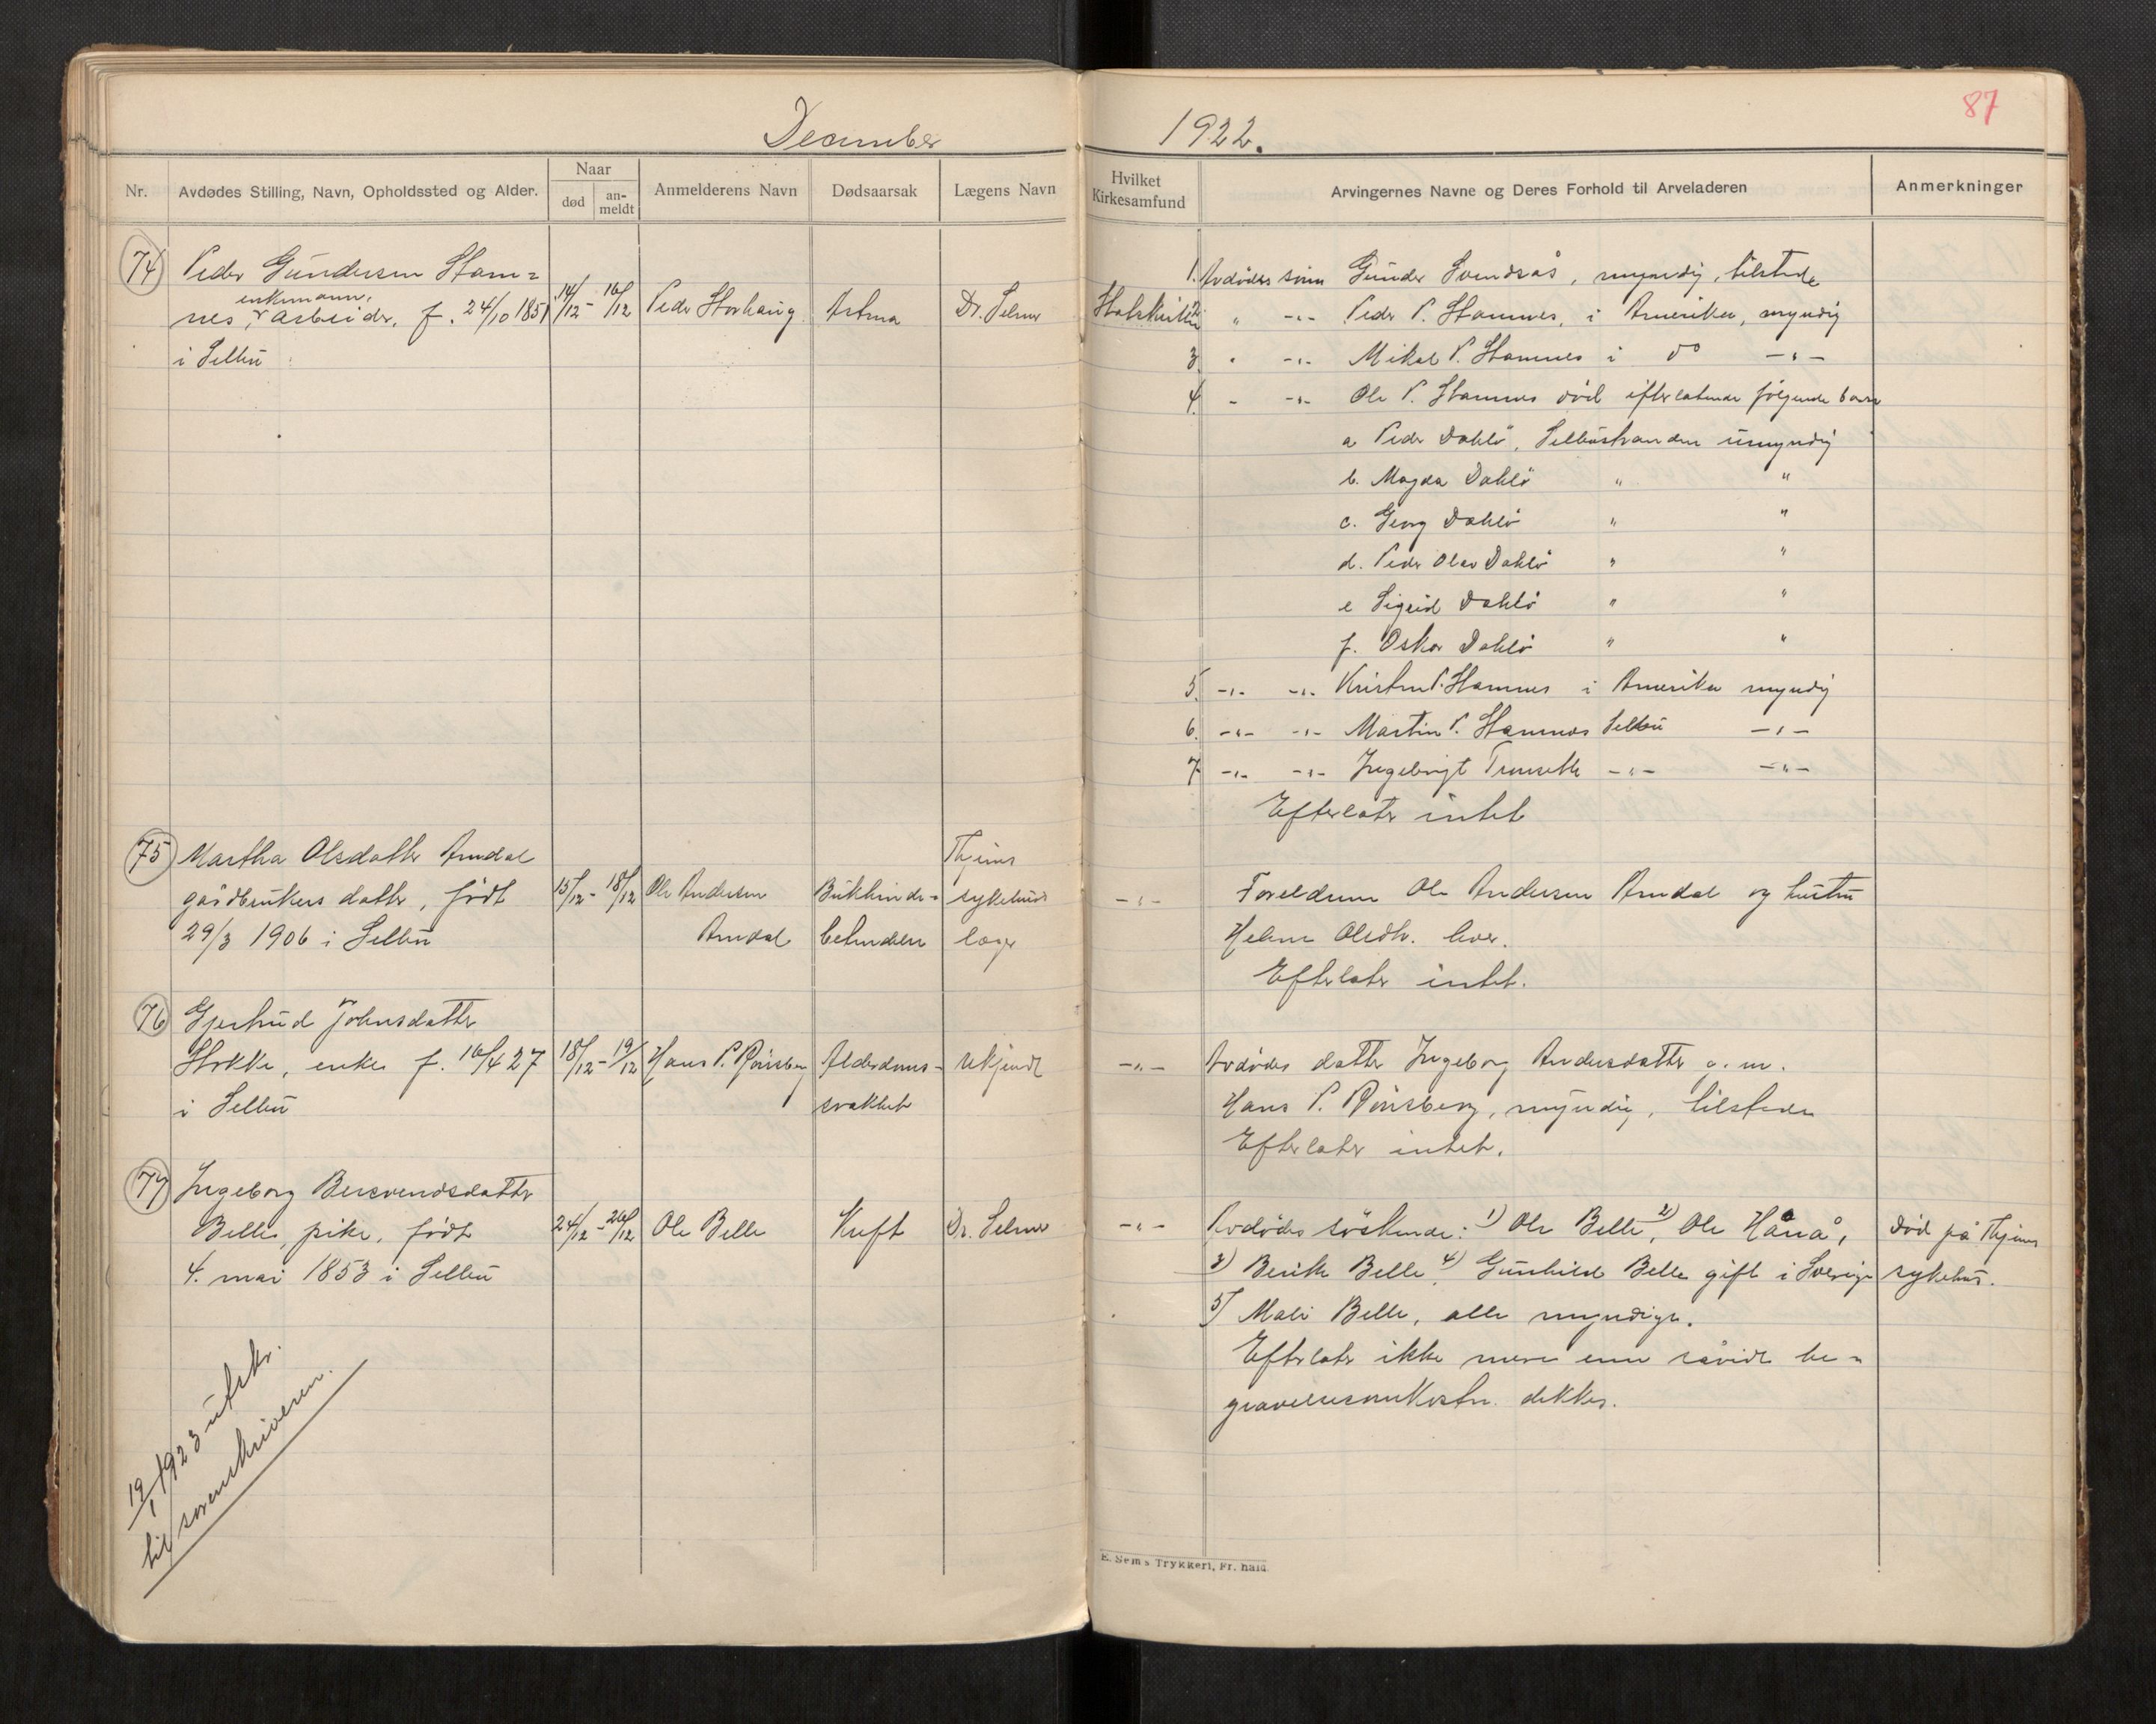 December 1922.
87
Nr.
Avdødes Stilling, Navn, Opholdssted og Alder.
Naar
død
an-
meldt
Anmelderens Navn
Dødsaarsak
Lægens Navn
Hvilket
Kirkesamfund
Arvingernes Navne og Deres Forhold til Arveladeren
Anmerkninger
74 Peder Gundersen Stam=
enkemann,
nes, arbeider, f. 24/10 1851
i Selbu
14/12 - 16/12
Peder Storhaug
Astma
Dr. Selmer
Statskirken
1. Avdødes sønn Gunder Svendsås, myndig, tilstede
2. " -"- Peder P. Stamnes, i Amerika, myndig
3. " -"- Mikal P. Stamnes i do -"-
4. - -"- Ole P. Stamnes död efterlatende følgende barn
a Peder Dahlö, Selbustranden umyndig
b. Magda Dahlö " "
c. Georg Dahlö " "
d. Peder Olav Dahlö " "
e Sigrid Dahlö " "
f. Oskar Dahlö " "
5. -"- -"- Kristen P. Stamnes i Amerika myndig
6. -"- -"- Martin P. Stamnes Selbu -"-
7 -"- -"- Ingebrigt -"- -"-
Efterlater intet
75 Martha Olsdatter Amdal
gårdbrukers datter, född
29/3 1906 i Selbu
15/12 - 18/12
Ole Andersen
Amdal
Bukhinde-
betendelse
Thjems
sykehus
læge
-"-
Foreldrene Ole Andersen Amdal og hustru
Helene Olsdtr. lever.
Efterlater intet.
76 Gjertrud Johnsdatter
Stokke, enke f. 16/4 27
i Selbu
18/12 - 19/12
Hans P. Rönsberg
Alderdoms-
svakhet
ukjendt
-"-
Avdødes datter Ingeborg Andersdatter g. m.
Hans P. Rönsberg, myndig, tilstede
Efterlater intet.
77 Ingeborg Bersvendsdatter
Belle, pike, född
4. mai 1853 i Selbu
24/12 - 26/12
Ole Belle
Kreft
Dr. Selmer
-"-
Avdødes söskende: 1) Ole Belle, 2) Ole Hånå,
3) Berit Belle, 4) Gunhild Belle gift i Sverige
5) Mali Belle, alle myndige.
Efterlater ikke mere enn såvidt be-
gravelsesomkostn. dekkes.
död på Thjems
sykehus.
19/1 1923 utskr.
til sorenskriveren.
E. Sem's Trykkeri, Fr.hald.